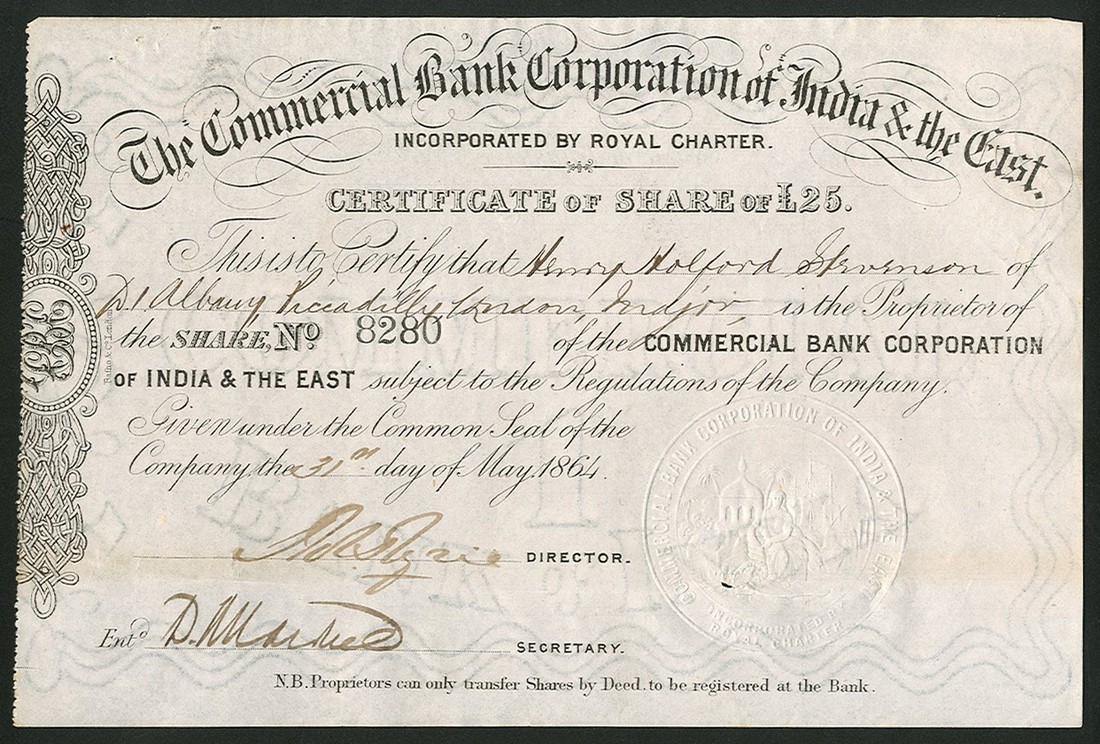 The Commercial Bank Corporation of India & the East.
INCORPORATED BY ROYAL CHARTER.
CERTIFICATE OF SHARE OF £25.
This is to Certify that Henry Holford Stevenson of
D1 Albany Piccadilly London Major is the Proprietor of
the SHARE, No. 8280 of the COMMERCIAL BANK CORPORATION
OF INDIA & THE EAST subject to the Regulations of the Company.
Given under the Common Seal of the
Company the 31st day of May 1864.
DIRECTOR.
Entd
SECRETARY.
N.B. Proprietors can only transfer Shares by Deed. to be registered at the Bank.
COMMERCIAL BANK CORPORATION OF INDIA & THE EAST
INCORPORATED BY
ROYAL CHARTER